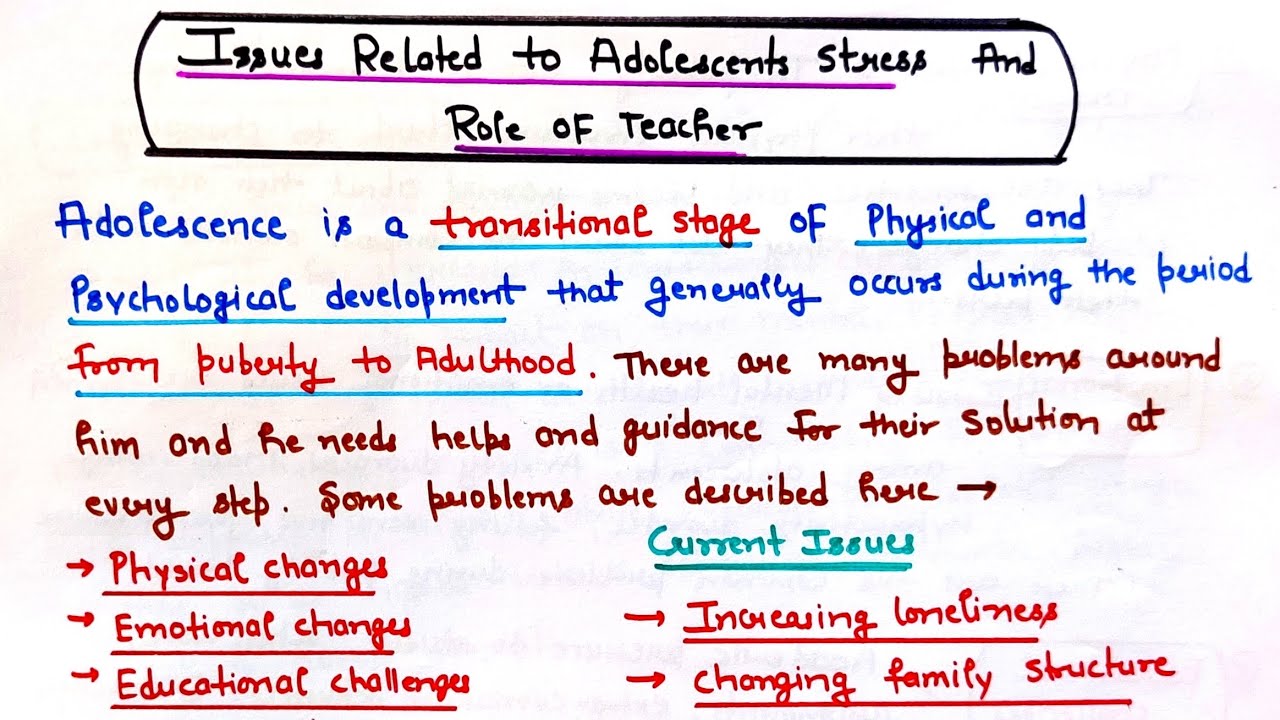 Issues Related to Adolescents Stress And
Role of Teacher
Adolescence is a transitional stage of Physical and
Psychological development that generally occurs during the period
from puberty to Adulthood. There are many problems around
him and he needs helps and guidance for their solution at
every step. Some problems are described here →
→ Physical changes
→ Emotional changes
→ Educational challenges
Current Issues
→ Increasing loneliness
→ Changing family structure